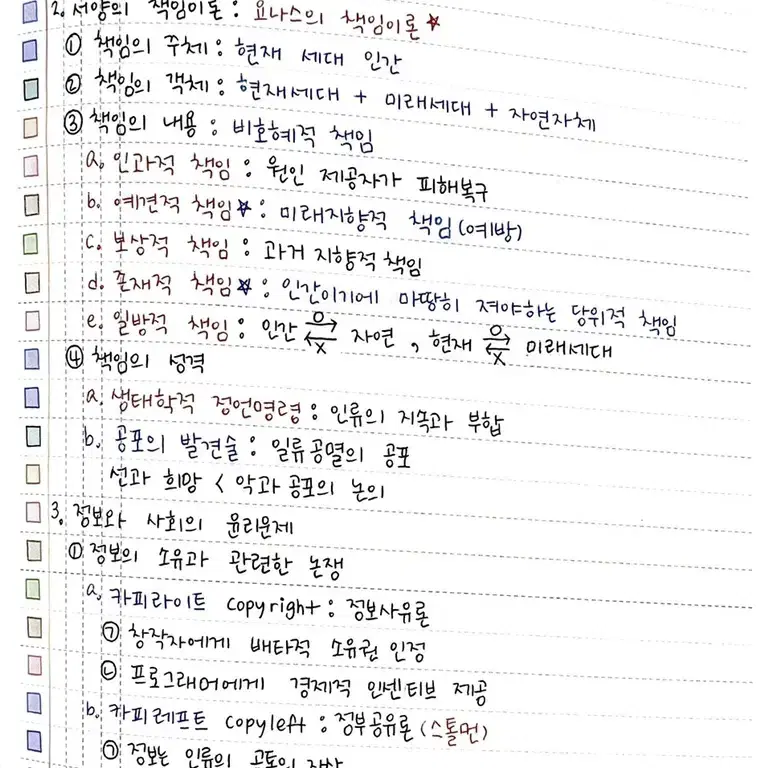 2. 서양의 책임이론 : 요나스의 책임이론 ★
① 책임의 주체 : 현재 세대 인간
② 책임의 객체 : 현재세대 + 미래세대 + 자연자체
③ 책임의 내용 : 비호혜적 책임
a. 인과적 책임 : 원인 제공자가 피해복구
b. 예견적 책임☆ : 미래지향적 책임(예방)
c. 보상적 책임 : 과거 지향적 책임
d. 존재적 책임☆ : 인간이기에 마땅히 져야하는 당위적 책임
e. 일방적 책임 : 인간 O→ ←X 자연 , 현재 O→ ←X 미래세대
④ 책임의 성격
a. 생태학적 정언명령 : 인류의 지속과 부합
b. 공포의 발견술 : 일류공멸의 공포
선과 희망 < 악과 공포의 논의
3. 정보와 사회의 윤리문제
① 정보의 소유과 관련한 논쟁
a. 카피라이트 copyright : 정보사유론
㉠ 창작자에게 배타적 소유권 인정
㉡ 프로그래머에게 경제적 인센티브 제공
b. 카피레프트 copyleft : 정부공유론 (스톨먼)
㉠ 정보는 인류의 공통의 자산